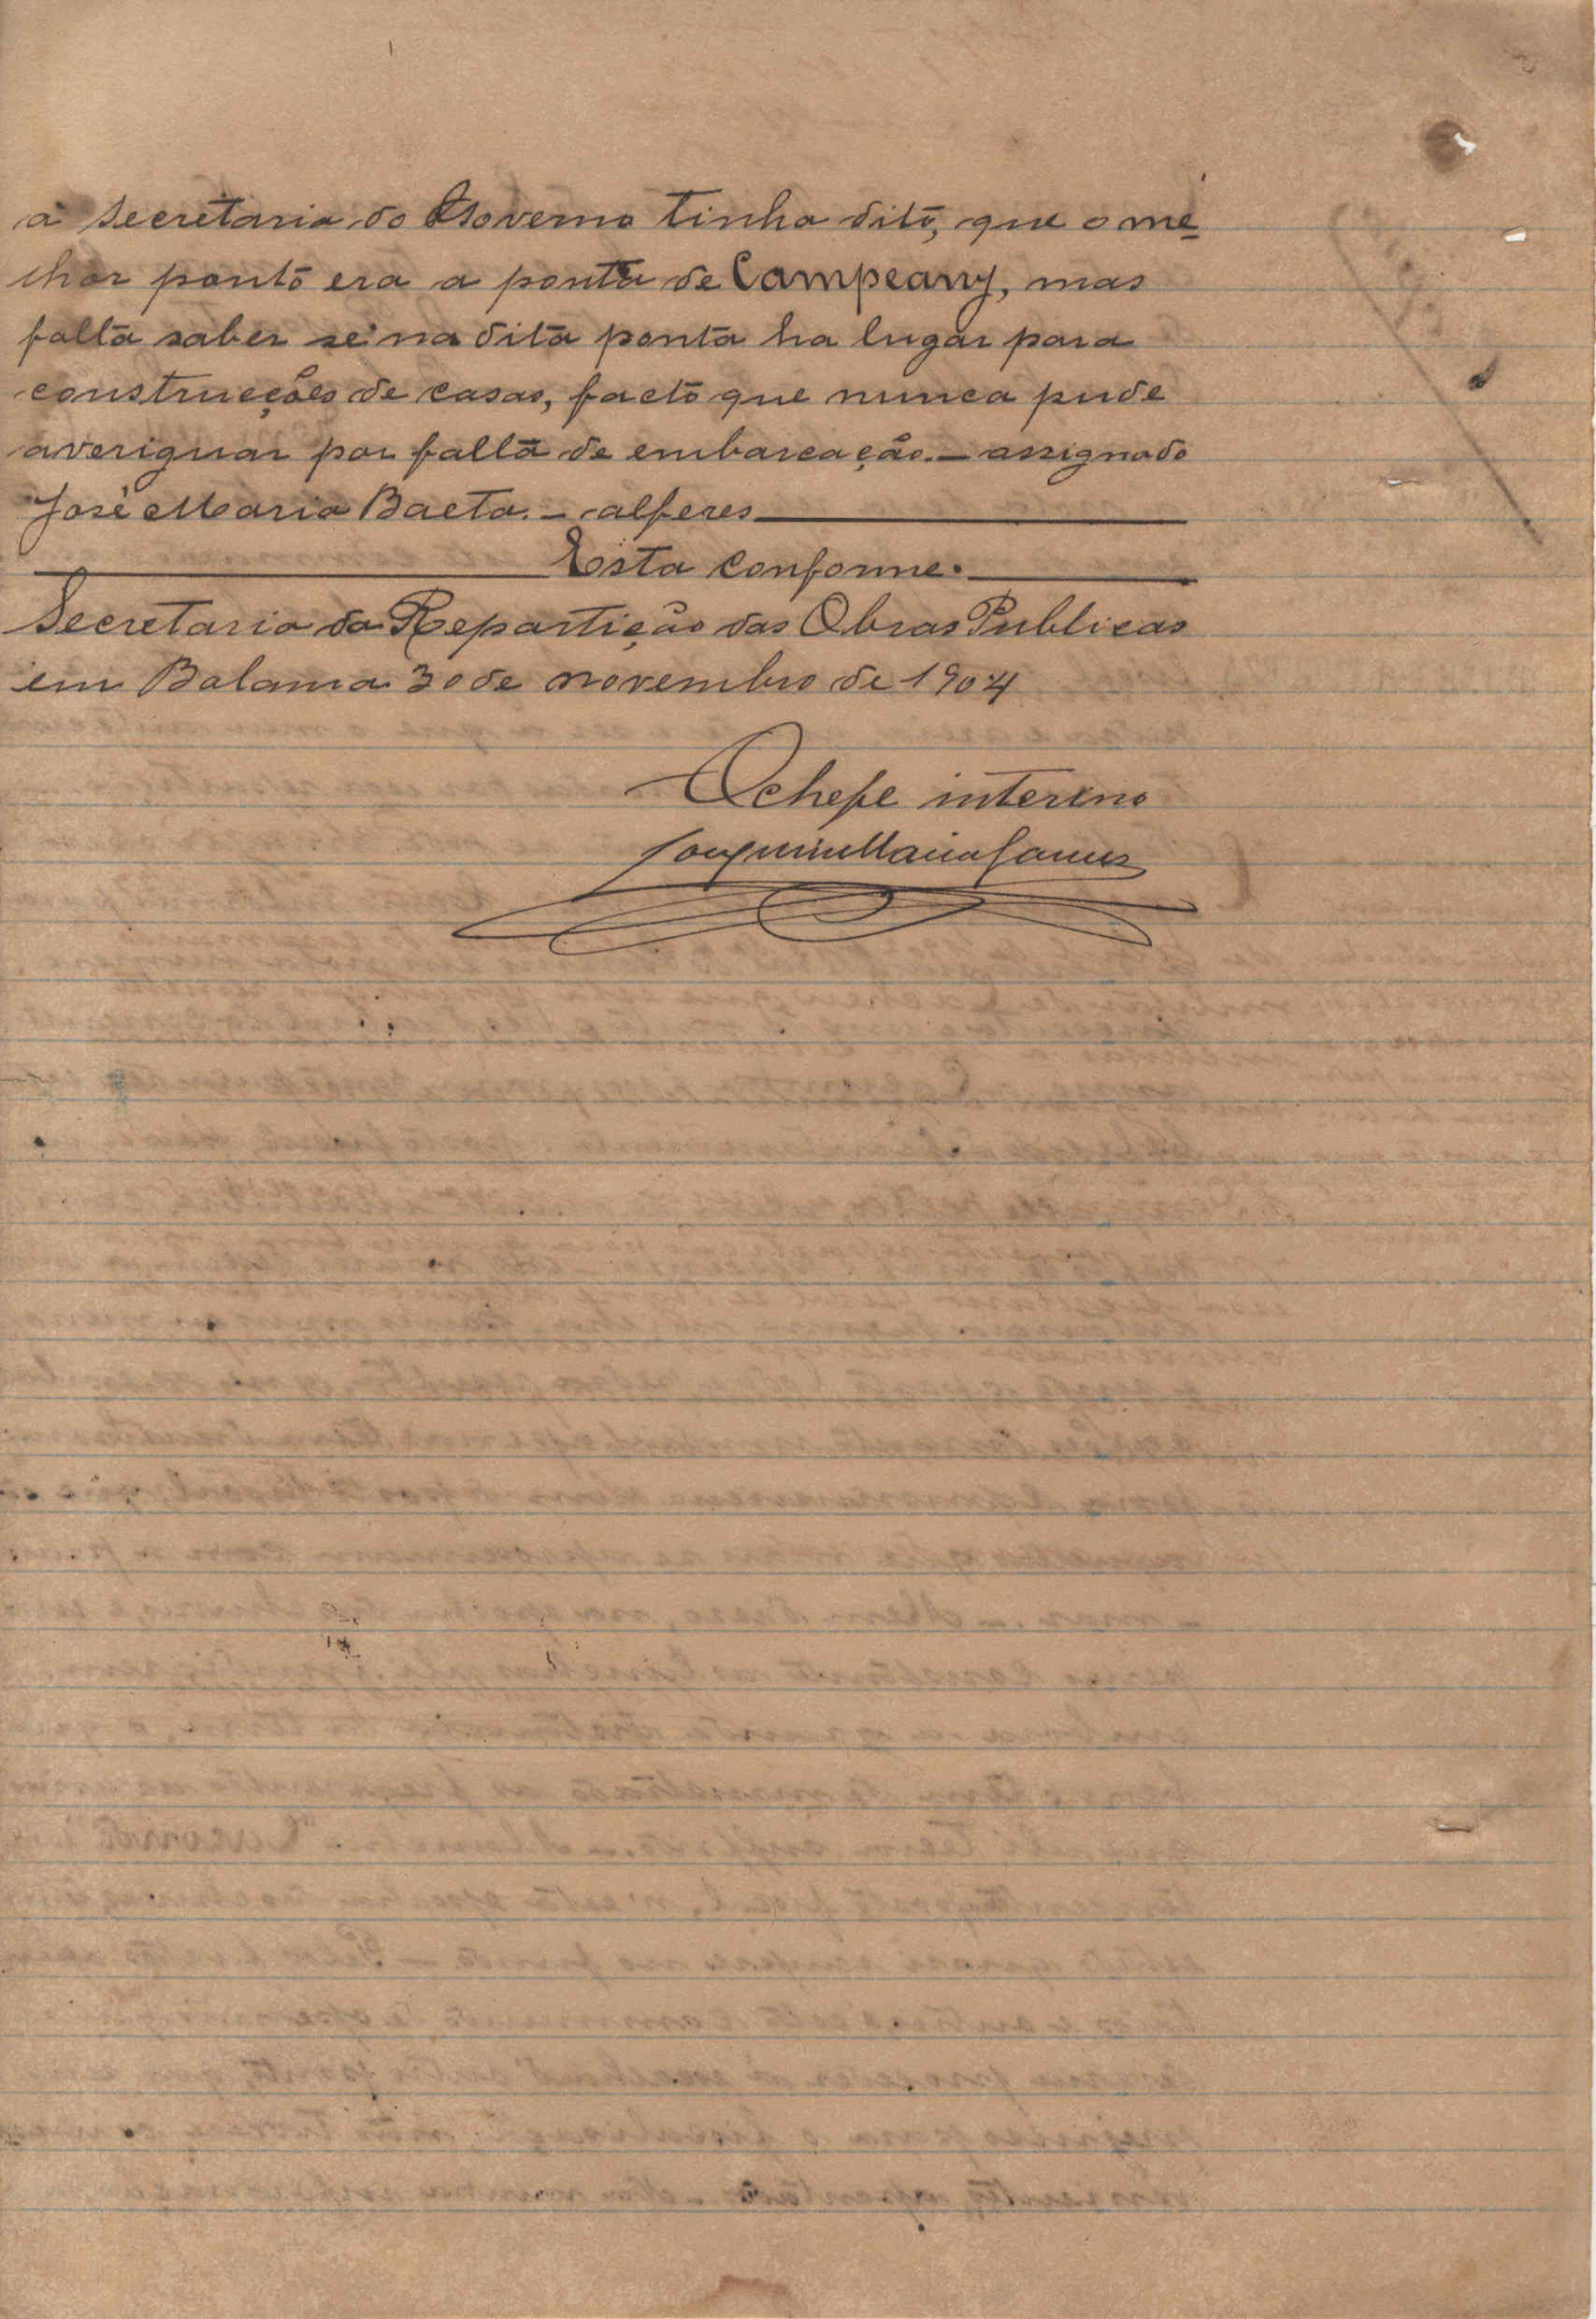 à secretaria do Governo tinha dito, que o me-
lhor ponto era a ponta de Campeany, mas
falta saber se na dita ponta ha lugar para
construcções de casas, facto que nunca pude
averiguar por falta de embarcação. — assignado
José Maria Baeta. — alferes
Esta conforme.
Secretaria da Repartição das Obras Publicas
em Bolama 30 de novembro de 1904
O chefe interino
Joaquim Maria